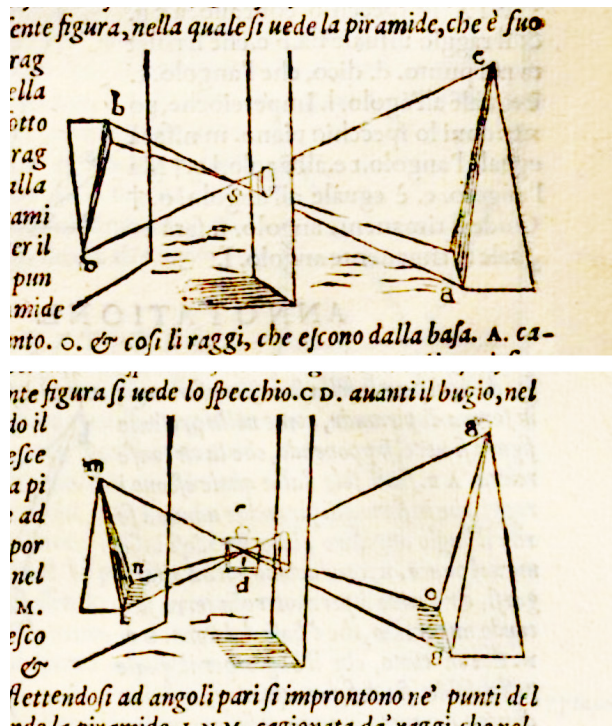 ente figura, nella quale ſi uede la piramide, che è ſuo
rag
ella
otto
rag
alla
ami
er il
pun
amide
c
b
s
o
a
nto. O. & coſi li raggi, che eſcono dalla baſa. A. ca-
nte figura ſi uede lo ſpecchio. C D. auanti il bugio, nel
do il
eſce
a pi
e ad
por
nel
M.
eſco
&
g
m
n
d
o
flettendoſi ad angoli pari ſi improntono ne' punti del